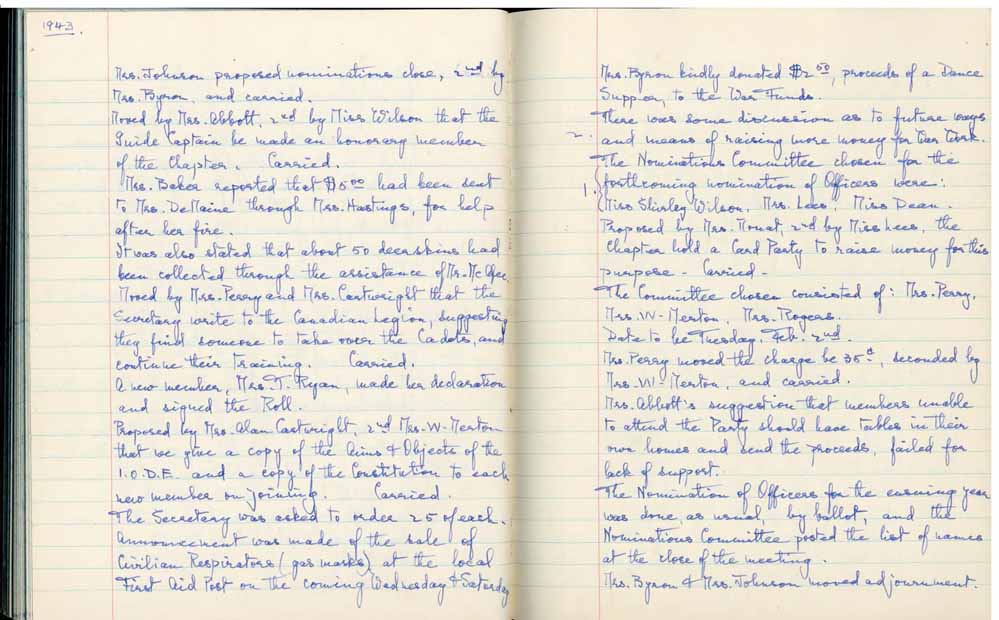 1943.
Mrs. Johnson proposed nominations close, 2nd by
Mrs. Byron, and carried.
Moved by Mrs. Abbott, 2nd by Miss Wilson that the
Guide Captain be made an honorary member
of the Chapter. Carried.
Mrs. Baker reported that $5.00 had been sent
to Mrs. DeMaine through Mrs. Hastings, for help
after her fire.
It was also stated that about 50 deerskins had
been collected through the assistance of Mr. McAfee.
Moved by Mrs. Perry and Mrs. Cartwright that the
Secretary write to the Canadian Legion, suggesting
they find someone to take over the Cadets, and
continue their Training. Carried.
A new member, Mrs. T. Ryan, made her declaration
and signed the Roll.
Proposed by Mrs. Alan Cartwright, 2nd Mrs. W-Merton
that we give a copy of the Aims & Objects of the
I.O.D.E. and a copy of the Constitution to each
new member on joining. Carried.
The Secretary was asked to order 25 of each.
Announcement was made of the sale of
Civilian Respirators (gas masks) at the local
First Aid Post on the coming Wednesday & Saturday
Mrs. Byron kindly donated $2.50, proceeds of a Dance
Supper, to the War Funds.
There was some discussion as to future ways
2. and means of raising more money for War Work.
The Nominations Committee chosen for the
1. forthcoming nomination of Officers were:
Miss Shirley Wilson, Mrs. Lees, Miss Dean.
Proposed by Mrs. Mouat, 2nd by Miss Lees, the
Chapter hold a Card Party to raise money for this
purpose - Carried -
The Committee chosen consisted of: Mrs. Perry,
Mrs. W-Merton, Mrs. Rogers.
Date to be Tuesday, Feb. 2nd.
Mrs. Perry moved the charge be 35¢, seconded by
Mrs. W-Merton, and carried.
Mrs. Abbott's suggestion that members unable
to attend the Party should have tables in their
own homes and send the proceeds, failed for
lack of support.
The Nomination of Officers for the ensuing year
was done, as usual, by ballot, and the
Nominations Committee posted the list of names
at the close of the meeting.
Mrs. Byron & Mrs. Johnson moved adjournment.